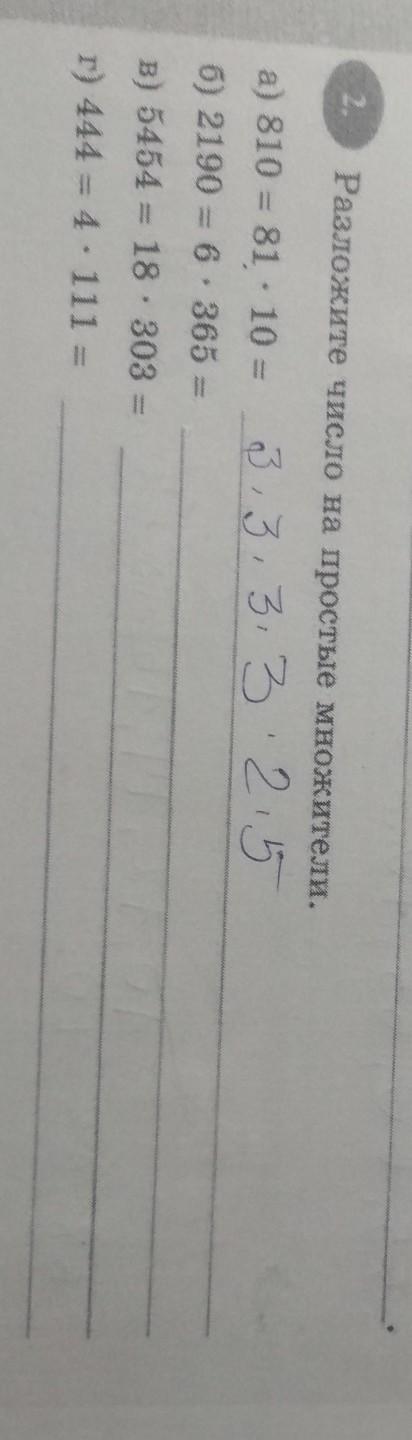 2. Разложите число на простые множители.
а) 810 = 81 · 10 = 3 · 3 · 3 · 3 · 2 · 5
б) 2190 = 6 · 365 =
в) 5454 = 18 · 303 =
г) 444 = 4 · 111 =